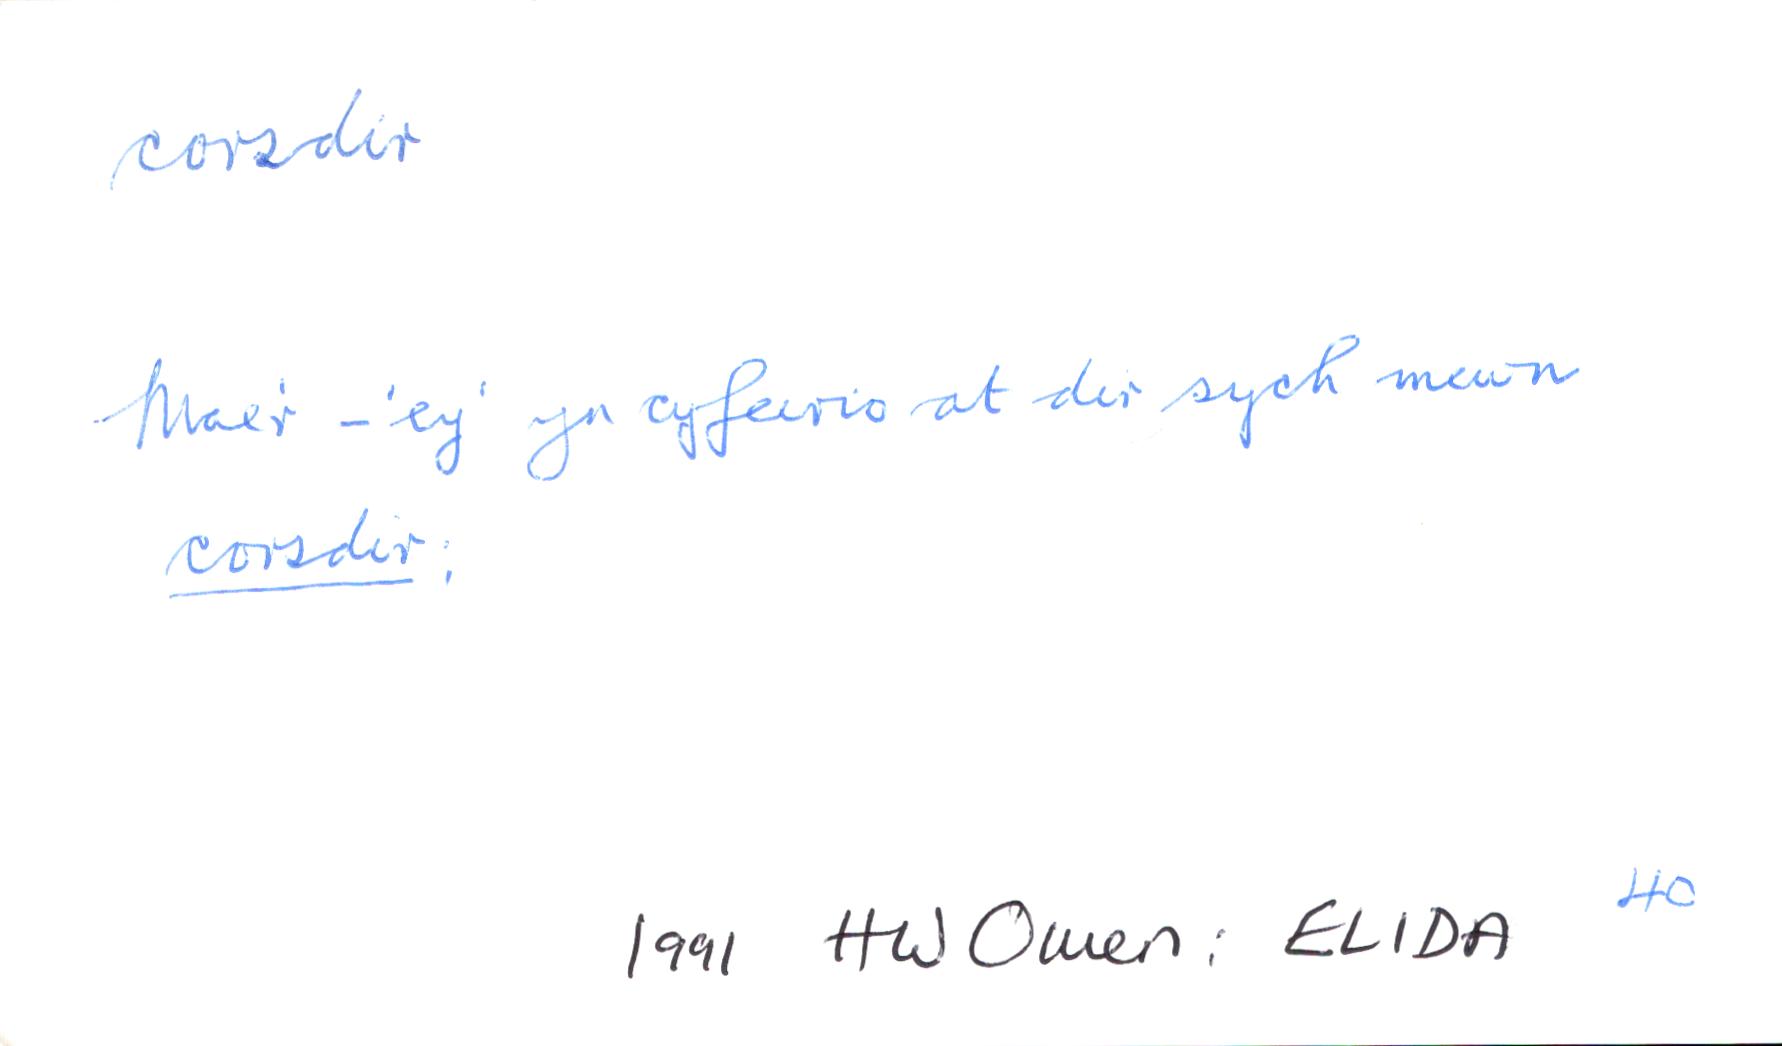 corsdir
Mae'r -'ey' yn cyfeirio at dir sych mewn
corsdir;
40
1991 HW Owen: ELIDA